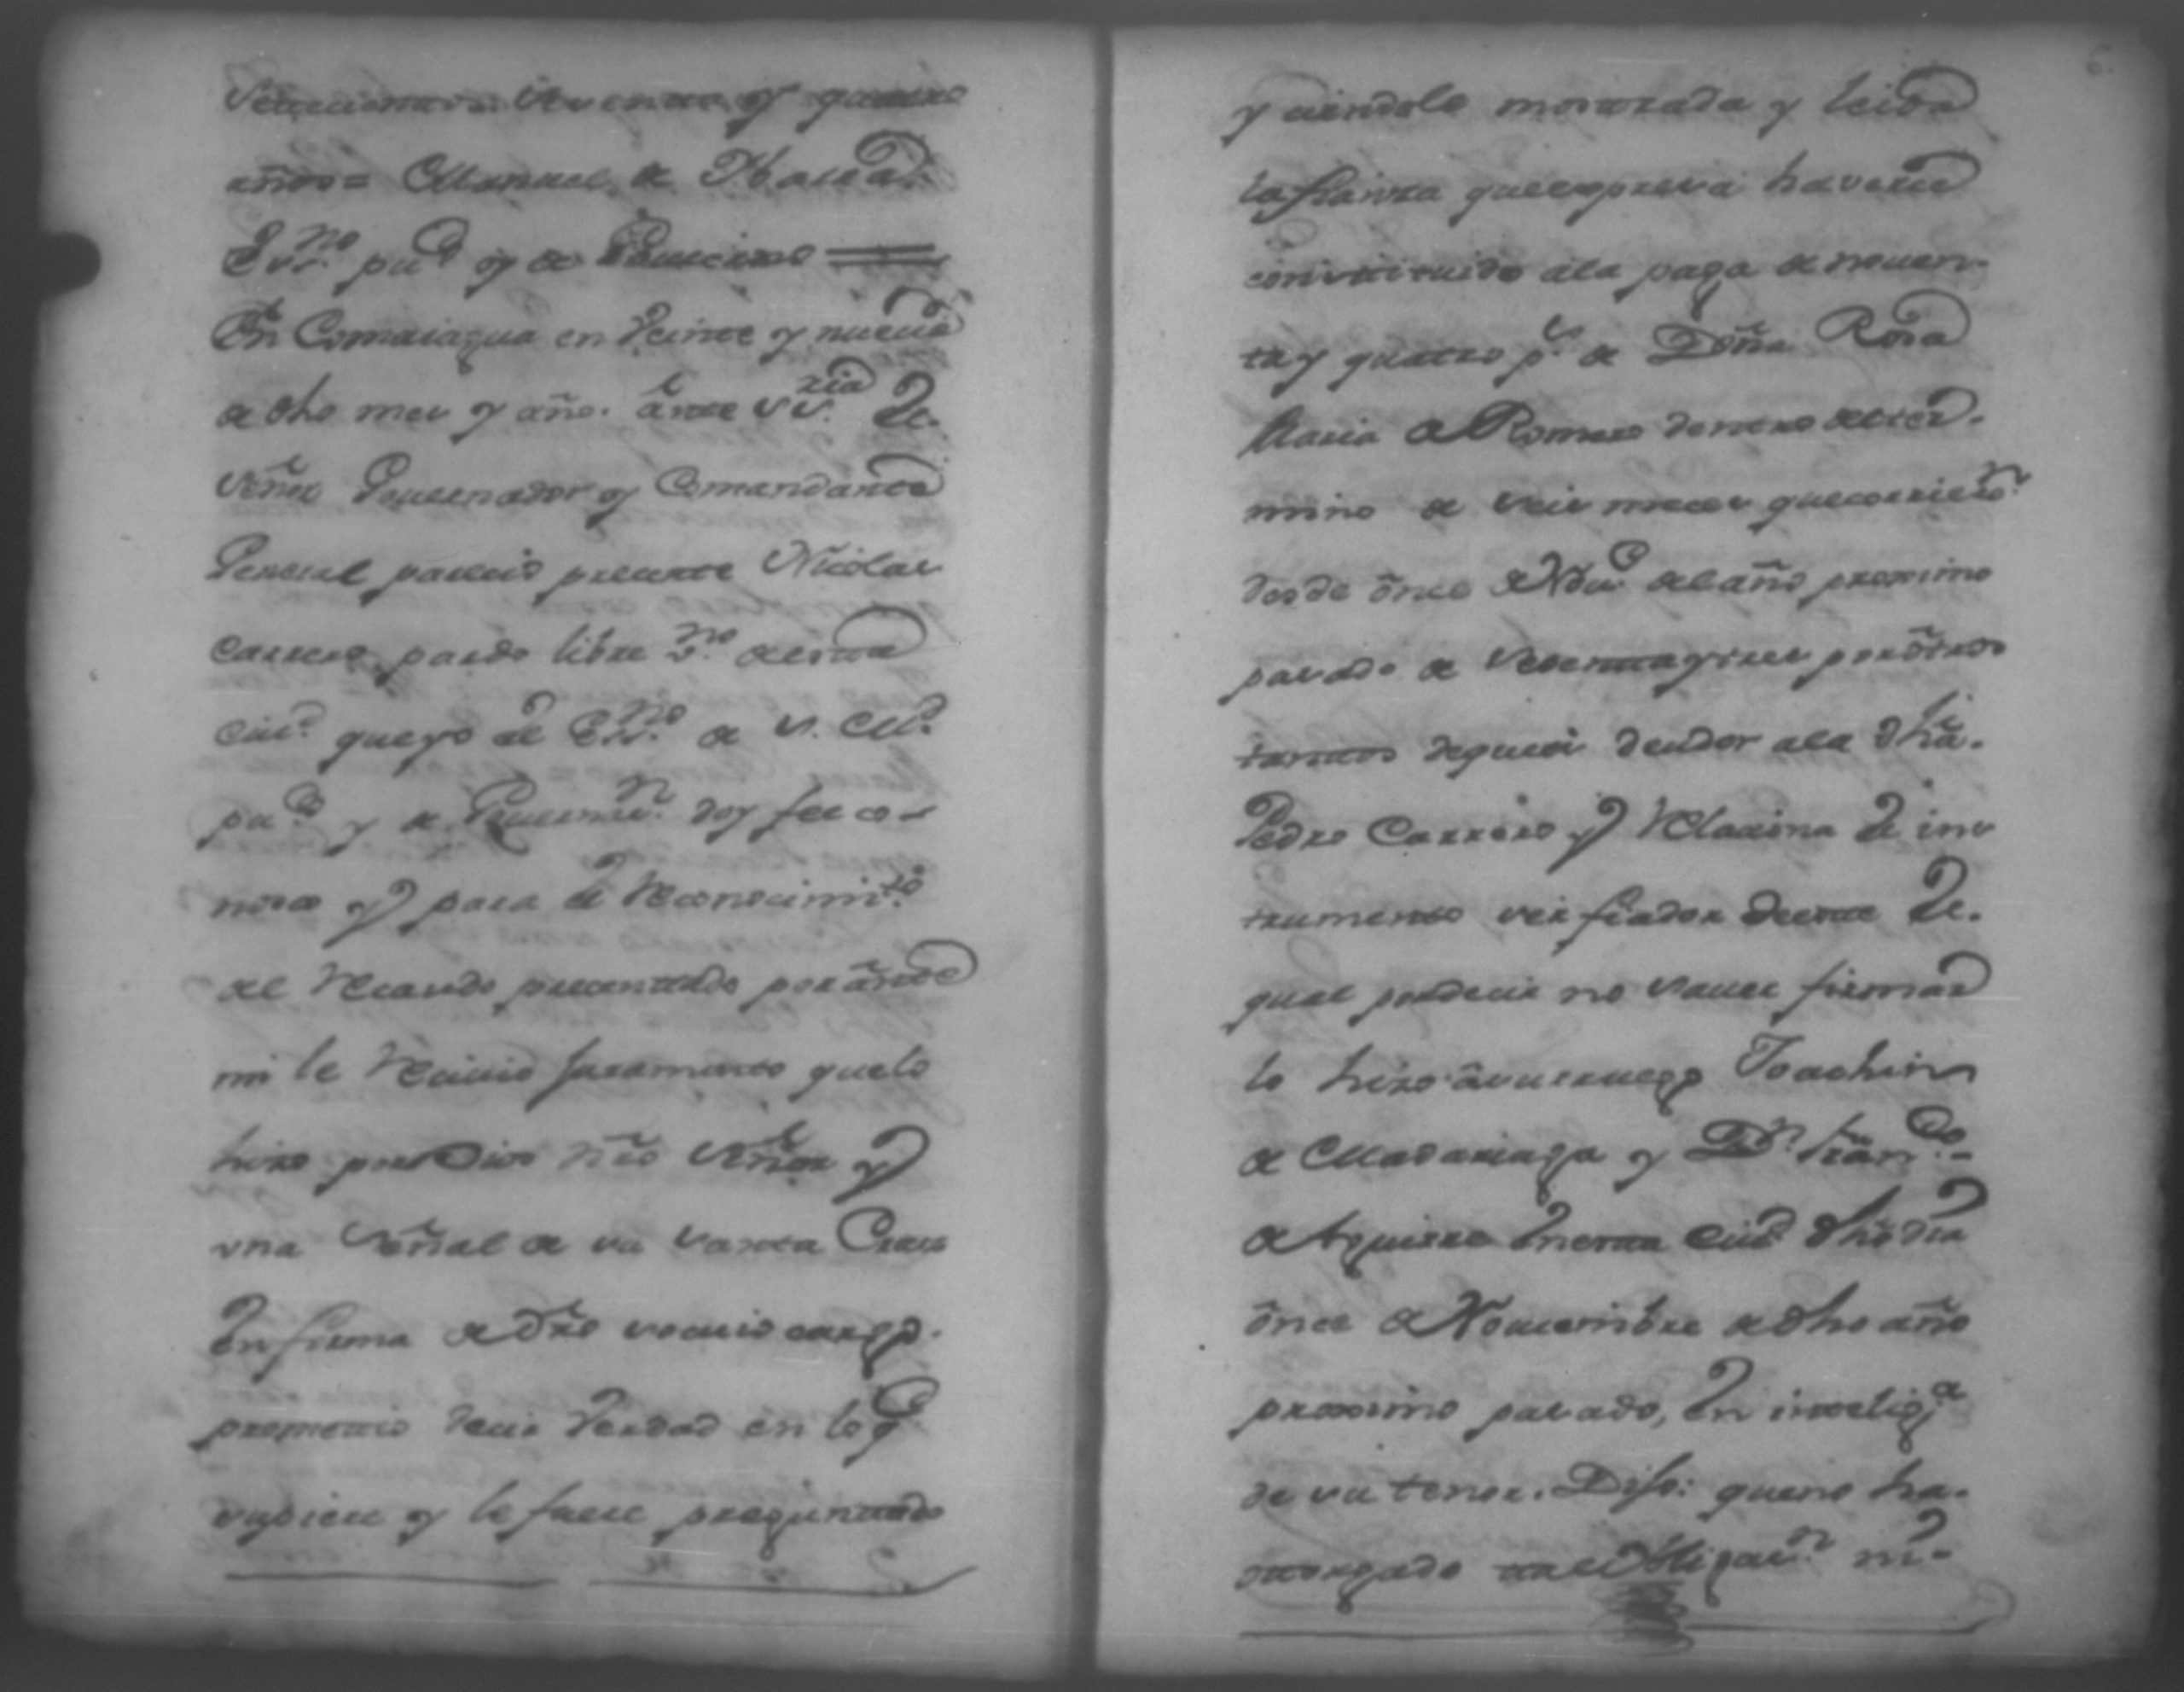 Setecientos sesenta y quatro
años = Manuel de
Esn.no pu.co y de Govierno
En Comaiagua en Veinte y nueve
de dho mes y año. ante su s.ria el
señor Governador y Comandante
General parecio presente Nicolas
Carrero pardo libre v.no de esta
ciu.d que yo el Es.no de S. M.
pu.co y de Governa.n doy fee co-
nosco y para el Reconocimi.to
del Recaudo precentado por ante
mi le Recivio Juramento que lo
hizo por Dios nrô señor y
una señal de su santa Cruz
En forma de drô so cuio cargo
prometio decir Verdad en lo q
supiere y le fuere preguntado
6.
y siendole mostrada y leida
la fianza que expresa haverse
constituido a la paga de noven-
ta y quatro p.s de Doña Rosa
Maria de Romero dentro del ter-
mino de seis meces que corrieron
desde once de Nov.e del año proximo
pasado de sesenta y tres por otros
tantos de que es deudor a la dhâ.
Pedro Carrero y Reclacina el ins
trumento ser fiador de este el
qual por decir no saver firmar
lo hizo â su ruego Joachin
de Madariaga y D.n Fran.co
de Aguirre En esta ciud dhô dia
once de Noviembre de dho año
proximo pasado, En inteligª
de su tenor. Dijo: que no ha
otorgado tal Obligac.n ni-